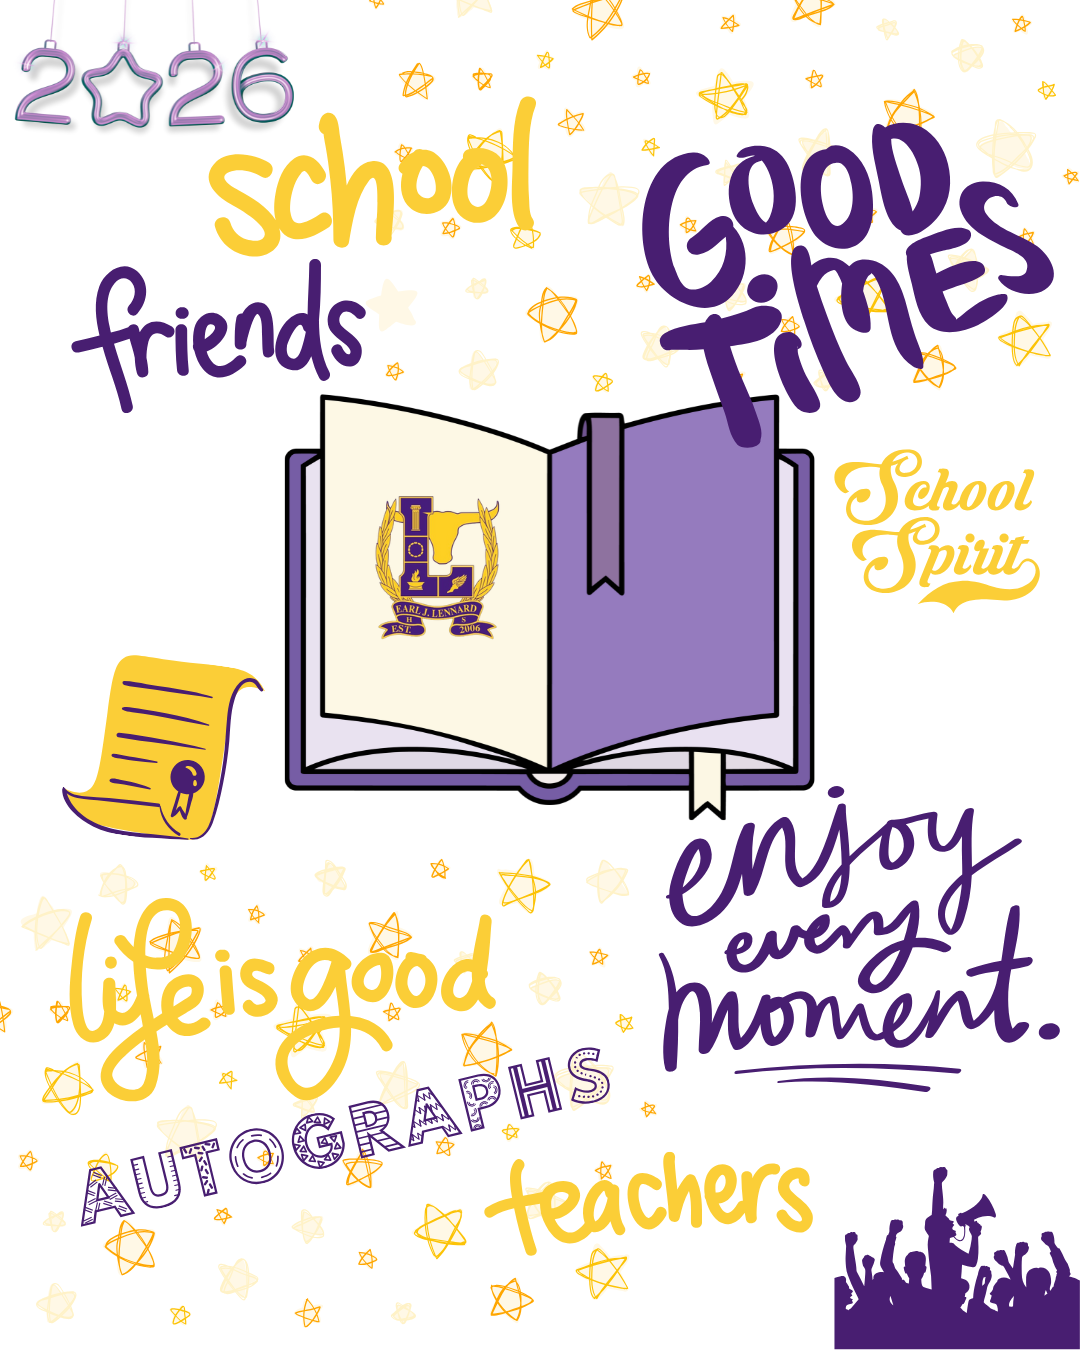 2026
school
GOOD
TiMES
friends
School
Spirit
EARL J. LENNARD
H S
EST. 2006
enjoy
every
moment.
life is good
AUTOGRAPHS
teachers